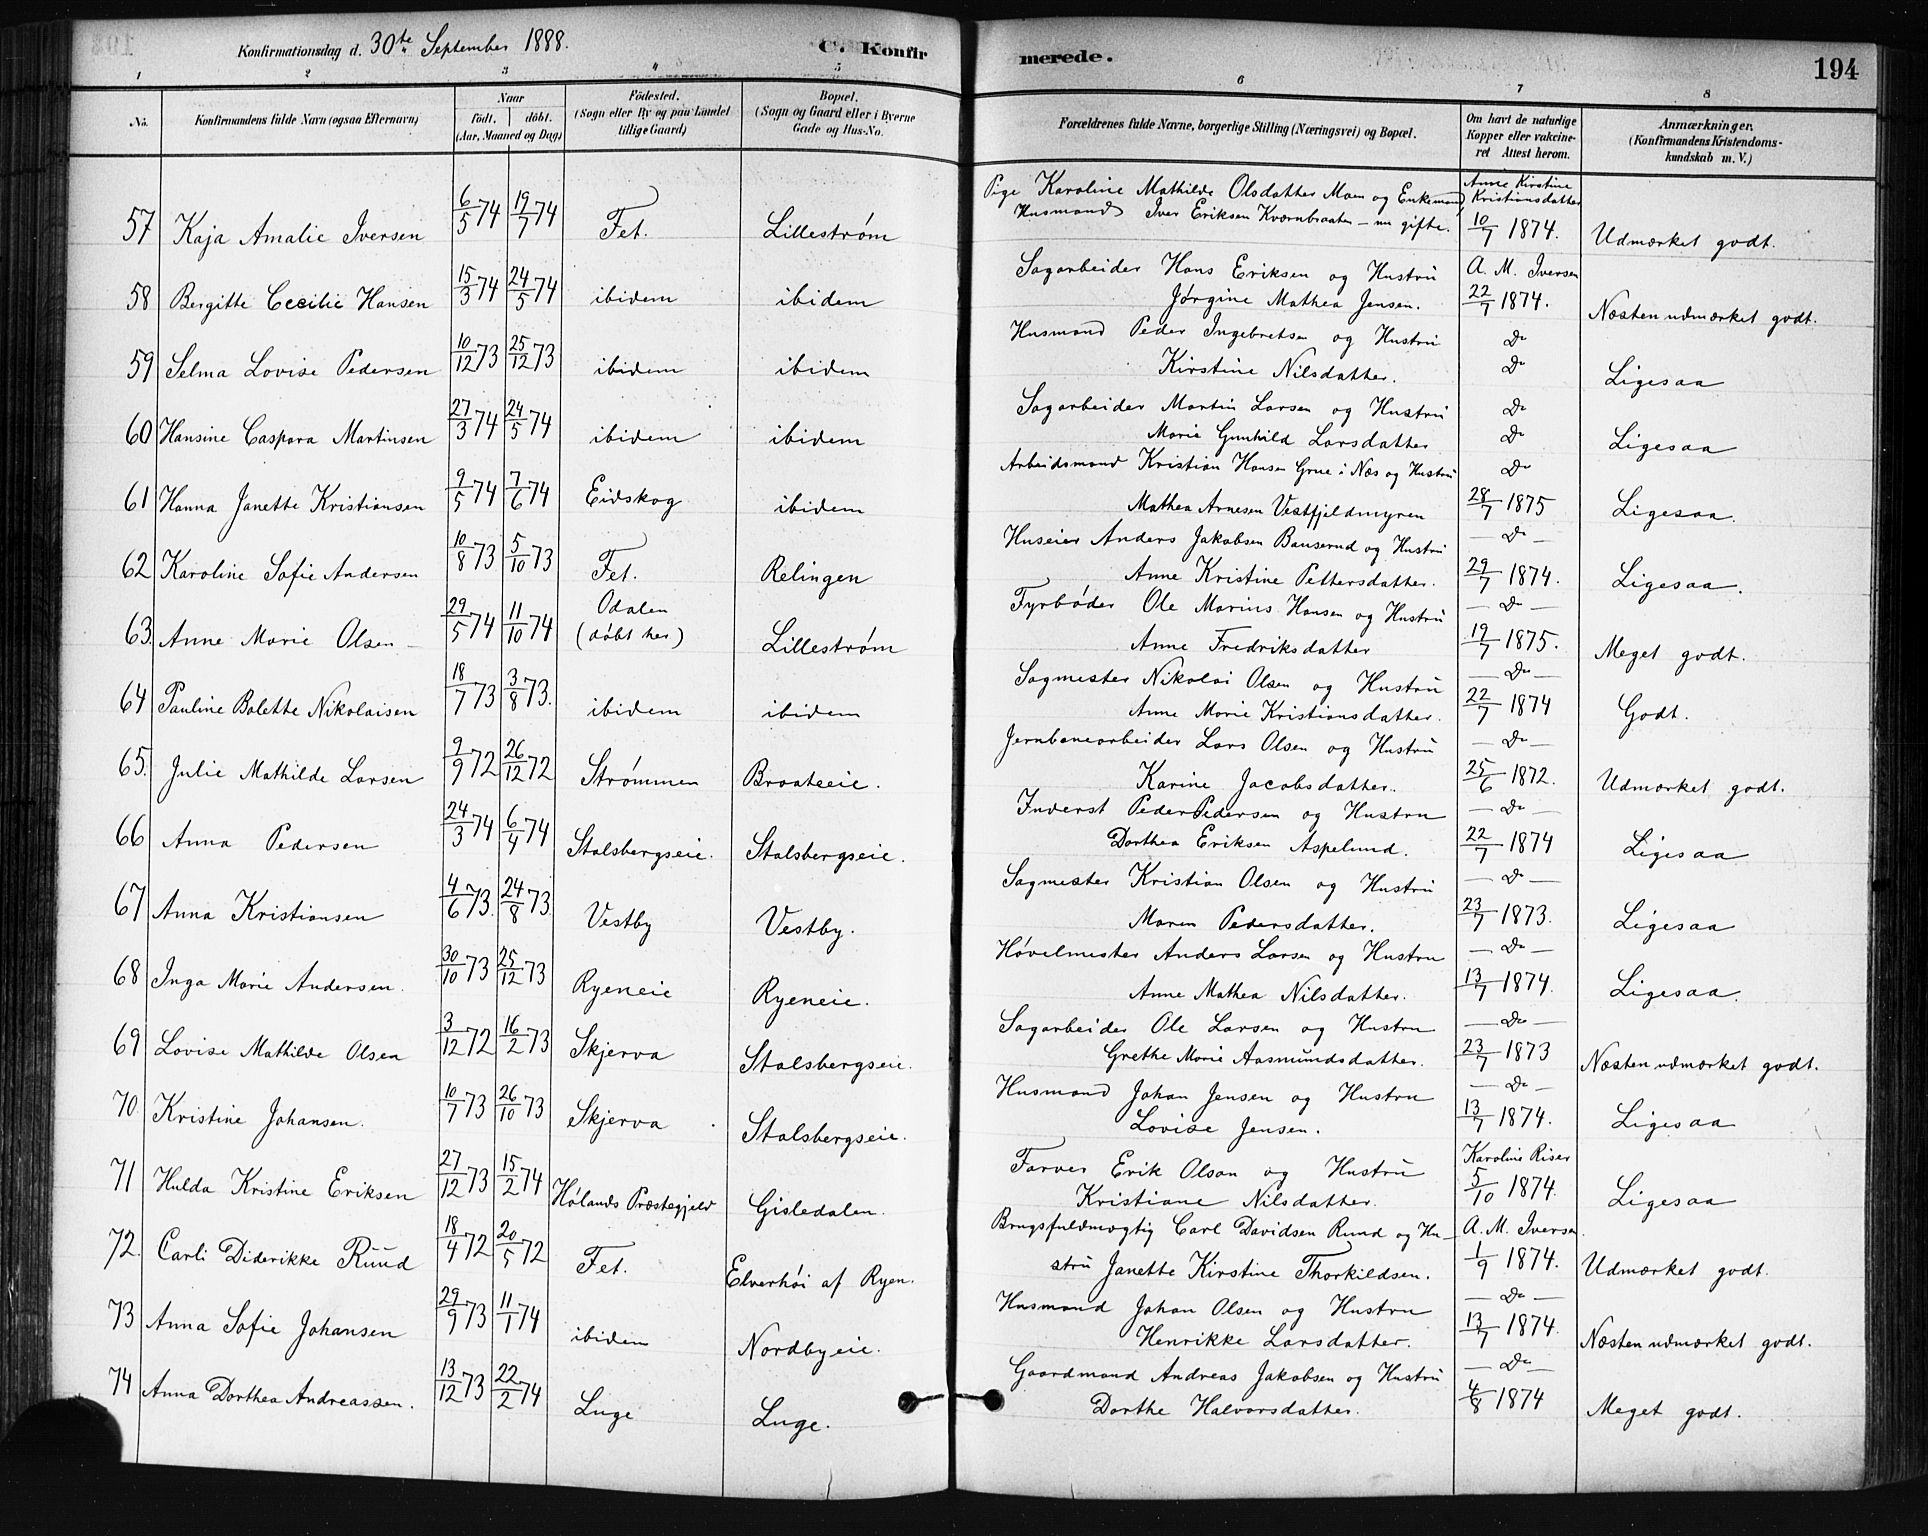 Konfirmationsdag d. 30te September 1888.
C. Konfirmerede.
194
1 2 3 4 5 6 7 8
No.
Konfirmandens fulde Navn (ogsaa Efternavn)
Naar
födt. döbt.
(Aar, Maaned og Dag)
Födested.
(Sogn eller By og paa Landet
tillige Gaard)
Bopæl.
(Sogn og Gaard eller i Byerne
Gade og Hus-No.
Forældrenes fulde Navne, borgerlige Stilling (Næringsvei) og Bopæl.
Om havt de naturlige
Kopper eller vakcine-
ret Attest herom.
Anmærkninger.
(Konfirmandens Kristendoms-
kundskab m. V.)
Pige Karoline Mathilde Olsdatter Moen og Enkemand Anne Kirstine
Husmand Iver Eriksen Kværnbraaten – nu gifte. Kristiansdatter
57 Kaja Amalie Iversen 6/5 74 19/7 74 Fet. Lillestrøm 10/7 1874. Udmærket godt.
Sagarbeider Hans Eriksen og Hustru A. M. Iversen
58 Bergitte Cecilie Hansen 15/3 74 24/5 74 ibidem ibidem Jørgine Mathea Jensen. 22/7 1874. Næsten udmærket godt.
Husmand Peder Ingebretsen og Hustru Do
59 Selma Lovise Pedersen 10/12 73 25/12 73 ibidem ibidem Kirstine Nilsdatter. Do Ligesaa
Sagarbeider Martin Larsen og Hustru Do
60 Hansine Caspara Martinsen 27/3 74 24/5 74 ibidem ibidem Marie Gunhild Larsdatter Do Ligesaa
Arbeidsmand Kristian Hansen Grue i Næs og Hustru Do
61 Hanna Janette Kristiansen 9/5 74 7/6 74 Eidskog ibidem Mathea Arnesen Vestfjeldmyren 28/7 1875 Ligesaa.
Huseier Anders Jakobsen Bauserud og Hustru – Do –
62 Karoline Sofie Andersen 10/8 73 5/10 73 Fet. Relingen Anne Kristine Pettersdatter. 29/7 1874. Ligesaa.
Fyrbøder Ole Marius Hansen og Hustru – Do –
63. Anne Marie Olsen – 29/5 74 11/10 74 Odalen (døbt her) Lillestrøm Anne Fredriksdatter 19/7 1875. Meget godt.
Sagmester Nikolai Olsen og Hustru – Do –
64 Pauline Bolette Nikolaisen 18/7 73 3/8 73. ibidem ibidem Anne Marie Kristiansdatter. 22/7 1874 Godt.
Jernbanearbeider Lars Olsen og Hustru – Do –
65. Julie Mathilde Larsen 9/9 72 26/12 72 Strømmen Braateeie. Karine Jacobsdatter. 25/6 1872. Udmærket godt.
Inderst Peder Pedersen og Hustru – Do –
66 Anna Pedersen 24/3 74 6/4 74 Stalsbergseie. Stalsbergseie. Dorthea Eriksen Aspelund. 22/7 1874 Ligesaa
Sagmester Kristian Olsen og Hustru – Do –
67 Anna Kristiansen 4/6 73. 24/8 73. Vestby Vestby. Maren Pedersdatter. 23/7 1873. Ligesaa
Høvelmester Anders Larsen og Hustru – Do –
68 Inga Marie Andersen. 30/10 73 25/12 73 Ryeneie Ryeneie. Anne Mathea Nilsdatter. 13/7 1874. Ligesaa.
Sagarbeider Ole Larsen og Hustru – Do –
69 Lovise Mathilde Olsen 3/12 72 16/2 73 Skjerva Stalsbergseie. Grethe Marie Aasmundsdatter. 23/7 1873 Næsten udmærket godt.
Husmand Johan Jensen og Hustru – Do –
70. Kristine Johansen. 10/7 73 26/10 73 Skjerva Stalsbergseie. Lovise Jensen. 13/7 1874. Ligesaa
Farver Erik Olsen og Hustru Karoline Riser
71 Hulda Kristine Eriksen 27/12 73 15/2 74 Hølands Præstegjeld Gisledalen. Kristiane Nilsdatter. 5/10 1874. Ligesaa
Brugsfuldmægtig Carl Davidsen Ruud og Hu- A. M. Iversen.
72. Carli Diderikke Ruud 18/4 72 20/5 72 Fet. Elverhøi af Ryen. stru Janette Kirstine Thorkildsen. 1/9 1874. Udmærket godt.
Husmand Johan Olsen og Hustru – Do –
73 Anna Sofie Johansen 29/9 73 11/1 74 ibidem Nordbyeie. Henrikke Larsdatter. 13/7 1874. Næsten udmærket godt.
Gaardmand Andreas Jakobsen og Hustru – Do –
74 Anna Dorthea Andreassen. 13/12 73 22/2 74 Luge Luge. Dorthe Halvorsdatter. 4/8 1874 Meget godt.